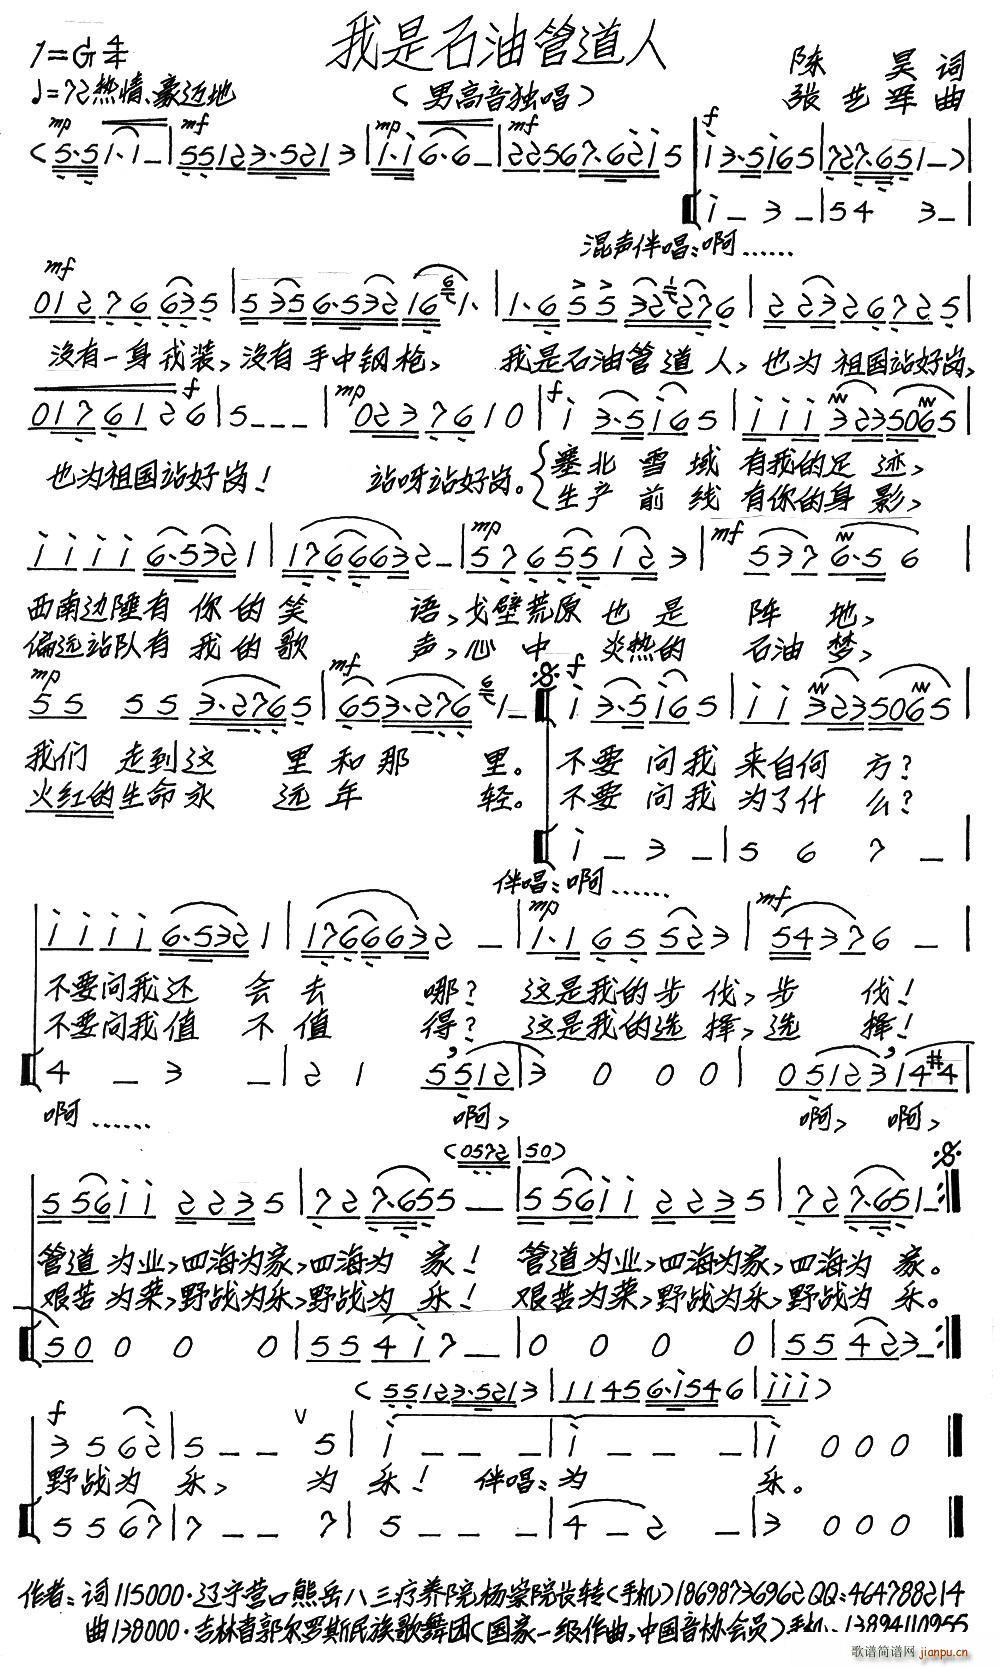 我是石油管道人
1=G 4/4
♩=72 热情、豪迈地
(男高音独唱)
陈 昊 词
张艺军 曲
mp mf mp mf f
(5·5 1·1 – | 55123·5213 | i·i 6·6 – | 22567·62i5 | i 3·5i65 | 727·651 –)
i – 3 – | 54 3 –
混声伴唱:啊……
mf
01276 635 | 5356·532161· | 1·6 55 32276 | 2232672 5
没有一身戎装,没有手中钢枪, 我是石油管道人,也为祖国站好岗,
f mp f
0176126 | 5 – – – | 0237610 | i 3·5i65 | iii3235065
也为祖国站好岗! 站呀站好岗。 塞北雪域有我的足迹,
生产前线有你的身影,
mp mf
iiii6·5321 | 1766632 – | 57655123 | 537 6·5 6
西南边陲有你的笑语,戈壁荒原也是阵地,
偏远站队有我的歌声,心中炎热的石油梦,
mp mf f
55 553·2765 | 653·276 1 – | i 3·5i65 | ii3235065
我们走到这里和那里。不要问我来自何方?
火红的生命永远年轻。不要问我为了什么?
i – 3 – | 5 6 7 –
伴唱:啊……
mp mf
iiii6·5321 | 1766632 – | 1·1 65 523 | 54376 –
不要问我还会去哪? 这是我的步伐,步伐!
不要问我值不值得? 这是我的选择,选择!
4 – 3 – | 2 1 5512 | 3 0 0 0 | 0512314#4
啊…… 啊, 啊,啊,
(0572 | 50)
556ii 2235 | 727·655 – | 556ii 2235 | 727·651 –
管道为业,四海为家,四海为家! 管道为业,四海为家,四海为家。
艰苦为荣,野战为乐,野战为乐! 艰苦为荣,野战为乐,野战为乐。
50 0 0 0 | 554i7 – | 0 0 0 0 | 55423 –
(55123·5213 | 11456·i546 | iii)
f
3 5 62 | 5 – – 5 | i – – – | i – – – | i 0 0 0
野战为乐, 为乐! 伴唱:为 乐。
5 5 67 | 7 – – 7 | 5 – – – | 4 – 2 – | 3 0 0 0
作者:词115000·辽宁营口熊岳八三疗养院杨案院长转(手机)18698736962QQ:464788214
曲138000·吉林省郭尔罗斯民族歌舞团(国家一级作曲,中国音协会员)手机:13894110955
歌谱简谱网
jianpu.cn